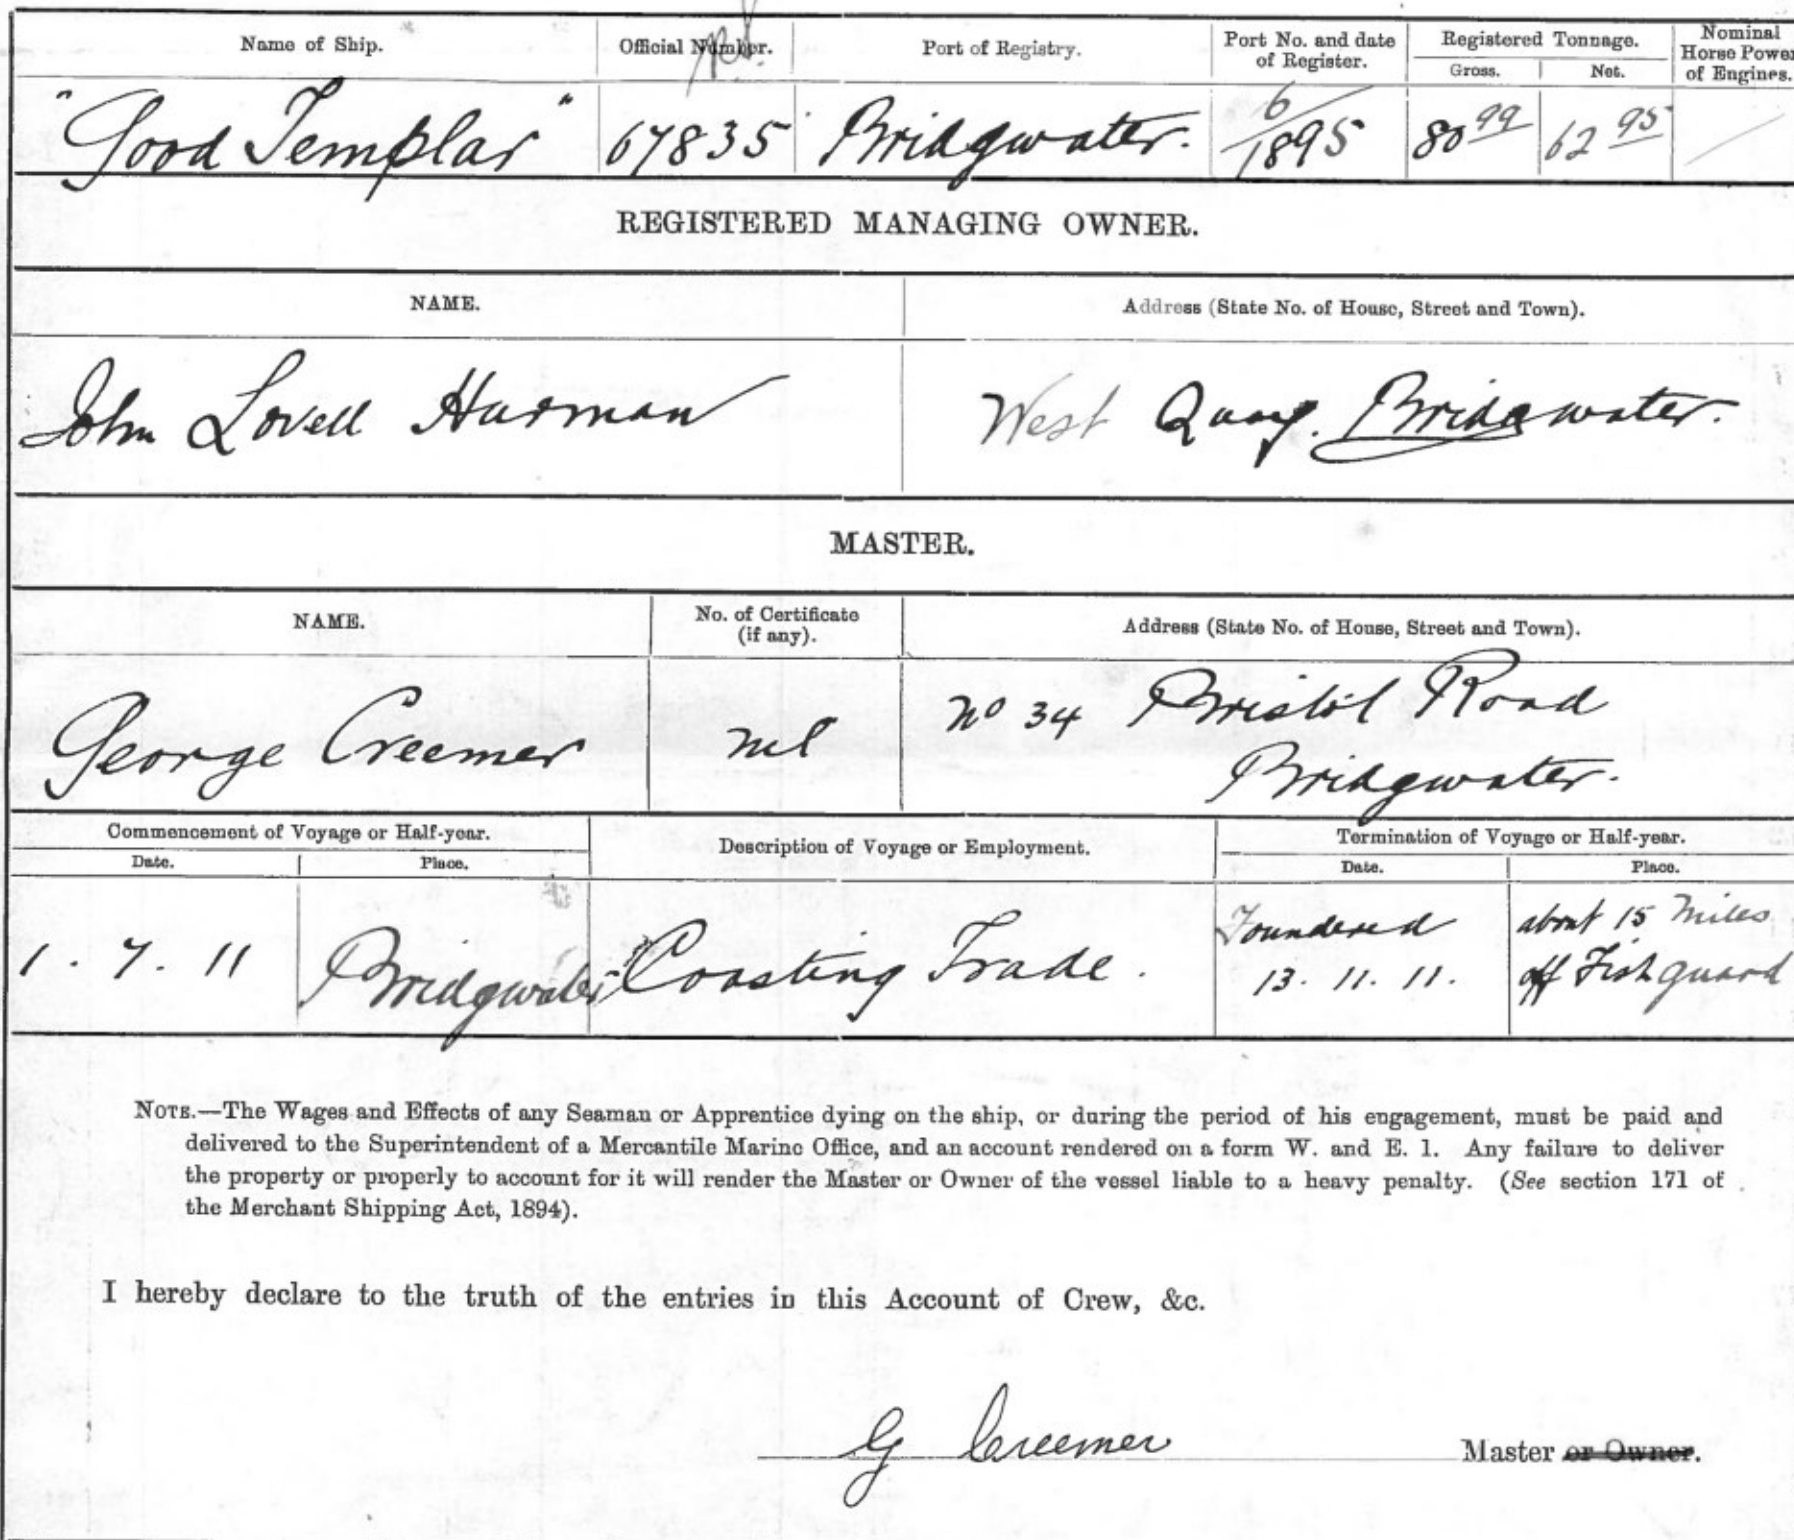 Name of Ship. Official Number. Port of Registry. Port No. and date of Register. Registered Tonnage. Gross. Net. Nominal Horse Power of Engines.
"Good Templar" 67835 Bridgwater. 6/1895 80 99 62 95
REGISTERED MANAGING OWNER.
NAME. Address (State No. of House, Street and Town).
John Lovell Hurman West Quay. Bridgwater.
MASTER.
NAME. No. of Certificate (if any). Address (State No. of House, Street and Town).
George Creemer nil No 34 Bristol Road
Bridgwater.
Commencement of Voyage or Half-year. Description of Voyage or Employment. Termination of Voyage or Half-year.
Date. Place. Date. Place.
Foundered about 15 miles
1. 7. 11 Bridgwater Coasting Trade. 13. 11. 11. off Fishguard
NOTE.—The Wages and Effects of any Seaman or Apprentice dying on the ship, or during the period of his engagement, must be paid and
delivered to the Superintendent of a Mercantile Marine Office, and an account rendered on a form W. and E. 1. Any failure to deliver
the property or properly to account for it will render the Master or Owner of the vessel liable to a heavy penalty. (See section 171 of
the Merchant Shipping Act, 1894).
I hereby declare to the truth of the entries in this Account of Crew, &c.
G Creemer Master or Owner.